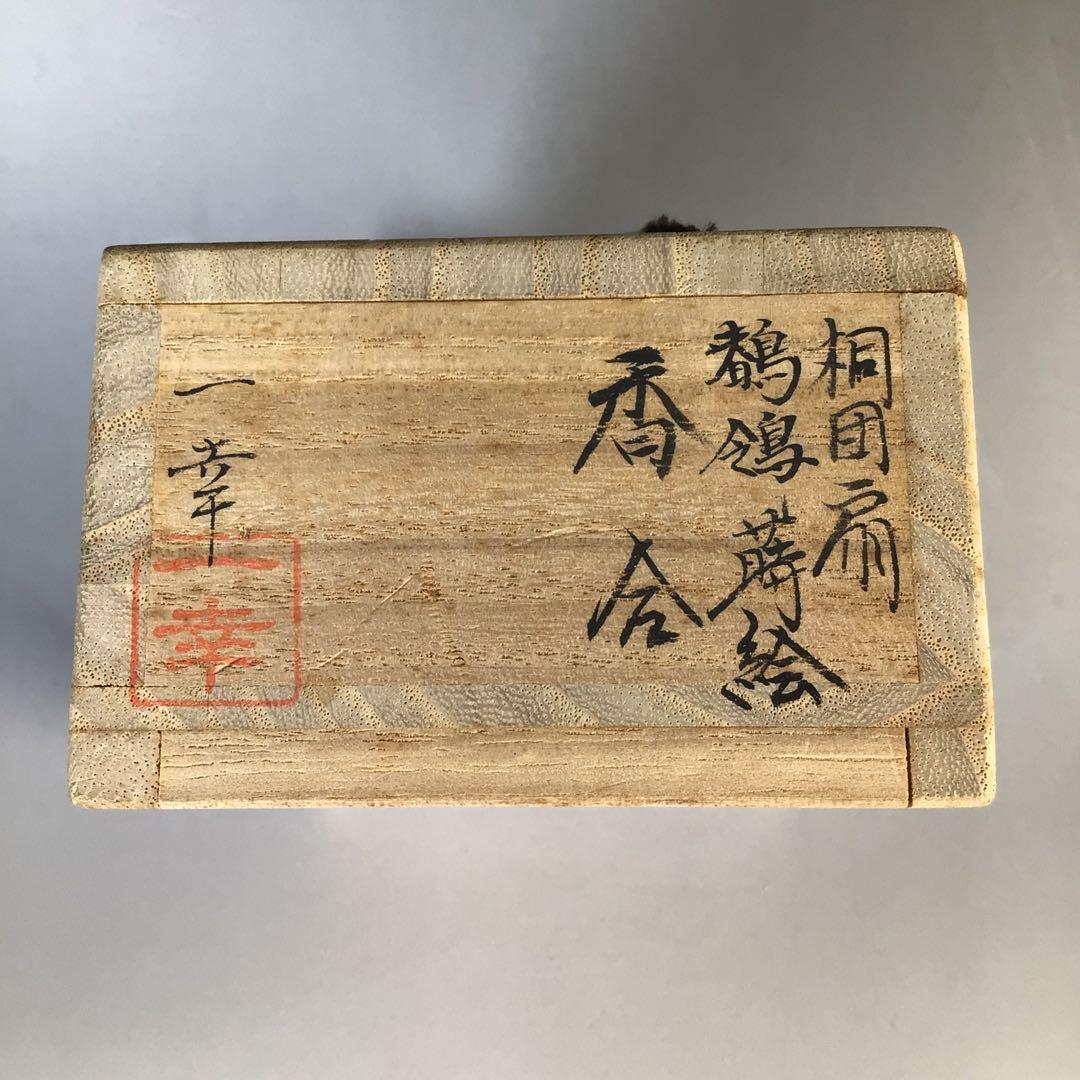 桐団扇
鶺鴒蒔絵
香合
一幸
一幸